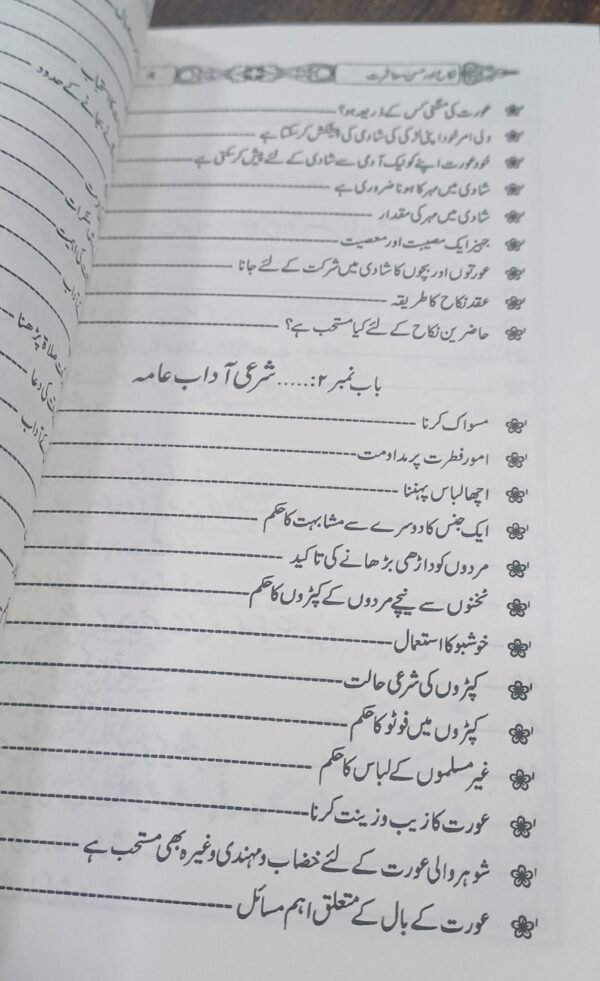 نکاح اور حسن معاشرت ۵
عورت کی منگنی کس کے ذریعہ ہو؟
ولی امر خود اپنی لڑکی کی شادی کی پیشکش کر سکتا ہے
خود عورت اپنے کو نیک آدمی سے شادی کے لئے پیش کر سکتی ہے
شادی میں مہر کا ہونا ضروری ہے
شادی میں مہر کی مقدار
جہیز ایک مصیبت اور معصیت
عورتوں اور بچوں کا شادی میں شرکت کے لئے جانا
عقد نکاح کا طریقہ
حاضرین نکاح کے لئے کیا مستحب ہے؟
باب نمبر ۲:..... شرعی آداب عامہ
مسواک کرنا
امور فطرت پر مداومت
اچھا لباس پہننا
ایک جنس کا دوسرے سے مشابہت کا حکم
مردوں کو داڑھی بڑھانے کی تاکید
ٹخنوں سے نیچے مردوں کے کپڑوں کا حکم
خوشبو کا استعمال
کپڑوں کی شرعی حالت
کپڑوں میں فوٹو کا حکم
غیر مسلموں کے لباس کا حکم
عورت کا زیب و زینت کرنا
شوہر والی عورت کے لئے خضاب و مہندی وغیرہ بھی مستحب ہے
عورت کے بال کے متعلق اہم مسائل
کے حدود
صلاۃ پڑھنا
کی دعا
آداب